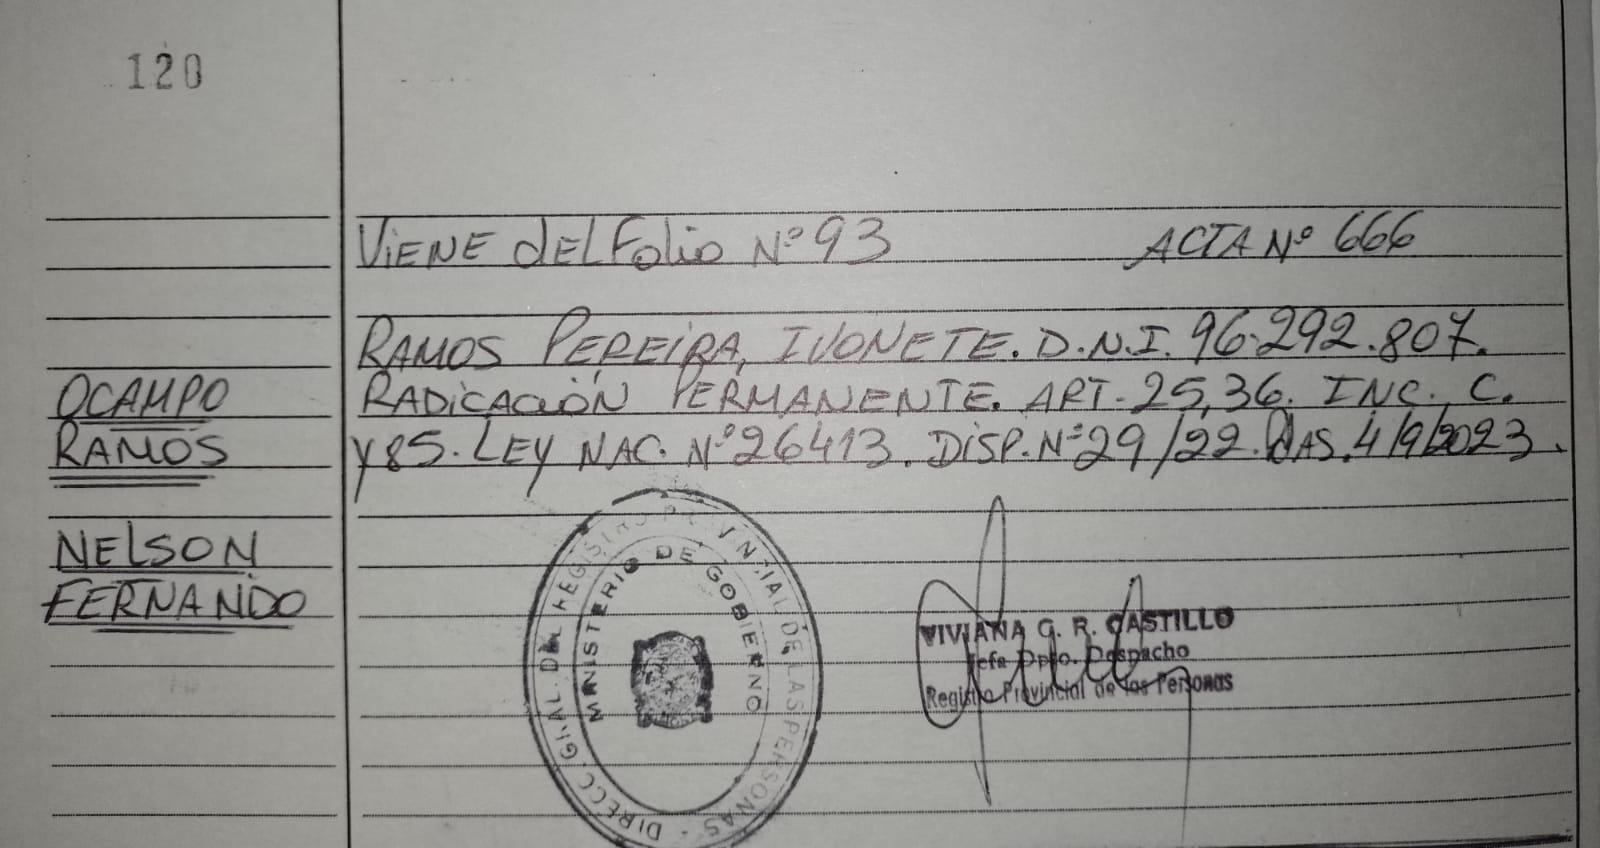 120
Viene del Folio Nº 93 ACTA Nº 666
RAMOS PEREIRA, IVONETE. D.N.I. 96.292.807.
RADICACIÓN PERMANENTE. ART. 25, 36. INC. C.
Y 85. LEY NAC. Nº 26413. DISP. Nº 29/22. 4/9/2023.
OCAMPO
RAMOS
NELSON
FERNANDO
DIRECC. GRAL. DEL REGISTRO PROVINCIAL DE LAS PERSONAS -
MINISTERIO DE GOBIERNO
VIVIANA G. R. CASTILLO
Jefa Dpto. Despacho
Registro Provincial de las Personas